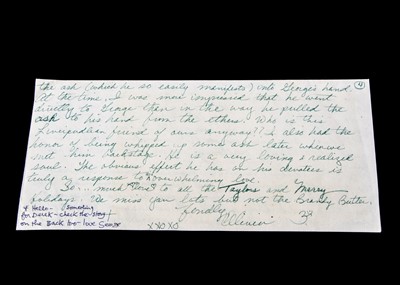 the ash (which he so easily manifests) into George's hand. 4
At the time, I was more impressed that he went
directly to George than in the way he pulled the
ash to his hand from the ethers. Who is this
friend of ours anyway?? I also had the
honor of being whipped up some ash later when we
met him backstage. He is a very loving & realized
soul. The obvious effect he has on his devotees is
truly a response to overwhelming love.
So... much love to all the Taylors and Merry
Holidays. We miss you lots but not the Brandy Butter.
Fondly,
Olivia
& Hello - Someday
for Derek - check the story
on the Back too - love
xxoxo